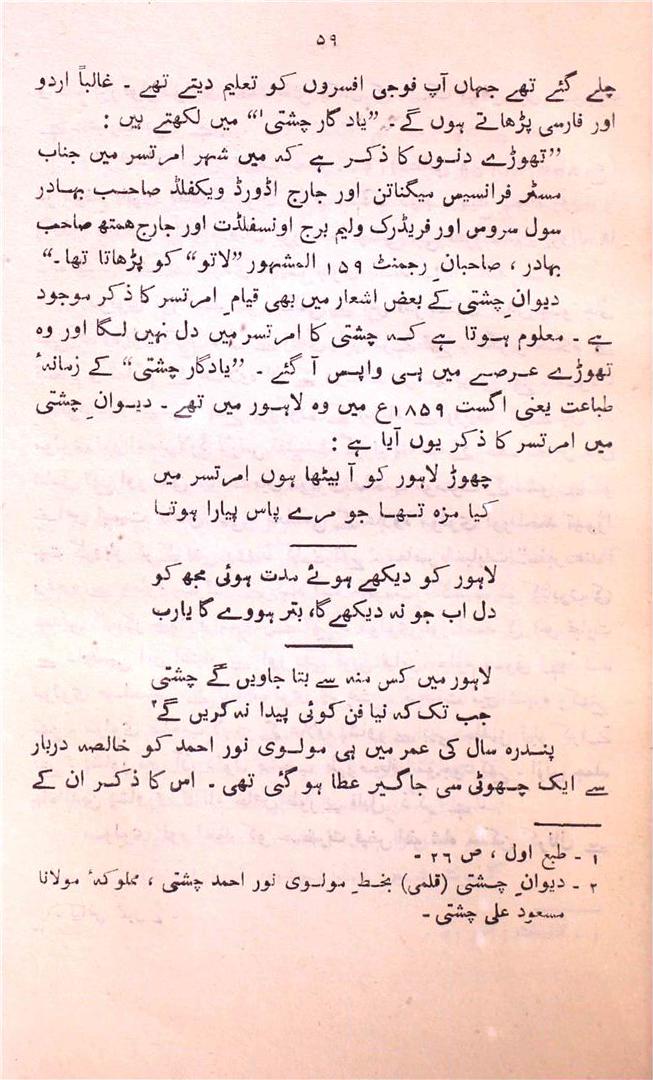 ۵۹
چلے گئے تھے جہاں آپ فوجی افسروں کو تعلیم دیتے تھے ۔ غالباً اردو
اور فارسی پڑھاتے ہوں گے ۔ ”یادگار چشتی۱“ میں لکھتے ہیں :
”تھوڑے دنوں کا ذکر ہے کہ میں شہر امرتسر میں جناب
مسٹر فرانسیس میگناٹن اور جارج اڈورڈ ویکفلڈ صاحب بہادر
سول سروس اور فریڈرک ولیم برج اونسفلدٹ اور جارج همتھ صاحب
بہادر ، صاحبانِ رجمنٹ ۱۵۹ المشہور ”لاتو“ کو پڑھاتا تھا ۔“
دیوانِ چشتی کے بعض اشعار میں بھی قیامِ امرتسر کا ذکر موجود
ہے ۔ معلوم ہوتا ہے کہ چشتی کا امرتسر میں دل نہیں لگا اور وہ
تھوڑے عرصے میں ہی واپس آ گئے ۔ ”یادگار چشتی“ کے زمانۂ
طباعت یعنی اگست ۱۸۵۹ع میں وہ لاہور میں تھے ۔ دیوانِ چشتی
میں امرتسر کا ذکر یوں آیا ہے :
چھوڑ لاہور کو آ بیٹھا ہوں امرتسر میں
کیا مزہ تھا جو مرے پاس پیارا ہوتا
لاہور کو دیکھے ہوئے مدت ہوئی مجھ کو
دل اب جو نہ دیکھے گا، بتر ہووے گا یارب
لاہور میں کس منہ سے بتا جاویں گے چشتی
جب تک کہ نیا فن کوئی پیدا نہ کریں گے۲
پندرہ سال کی عمر میں ہی مولوی نور احمد کو خالصہ دربار
سے ایک چھوٹی سی جاگیر عطا ہو گئی تھی ۔ اس کا ذکر ان کے
۱ - طبع اول ، ص ۲۶ -
۲ - دیوانِ چشتی (قلمی) بخطِ مولوی نور احمد چشتی ، مملوکۂ مولانا
مسعود علی چشتی ۔